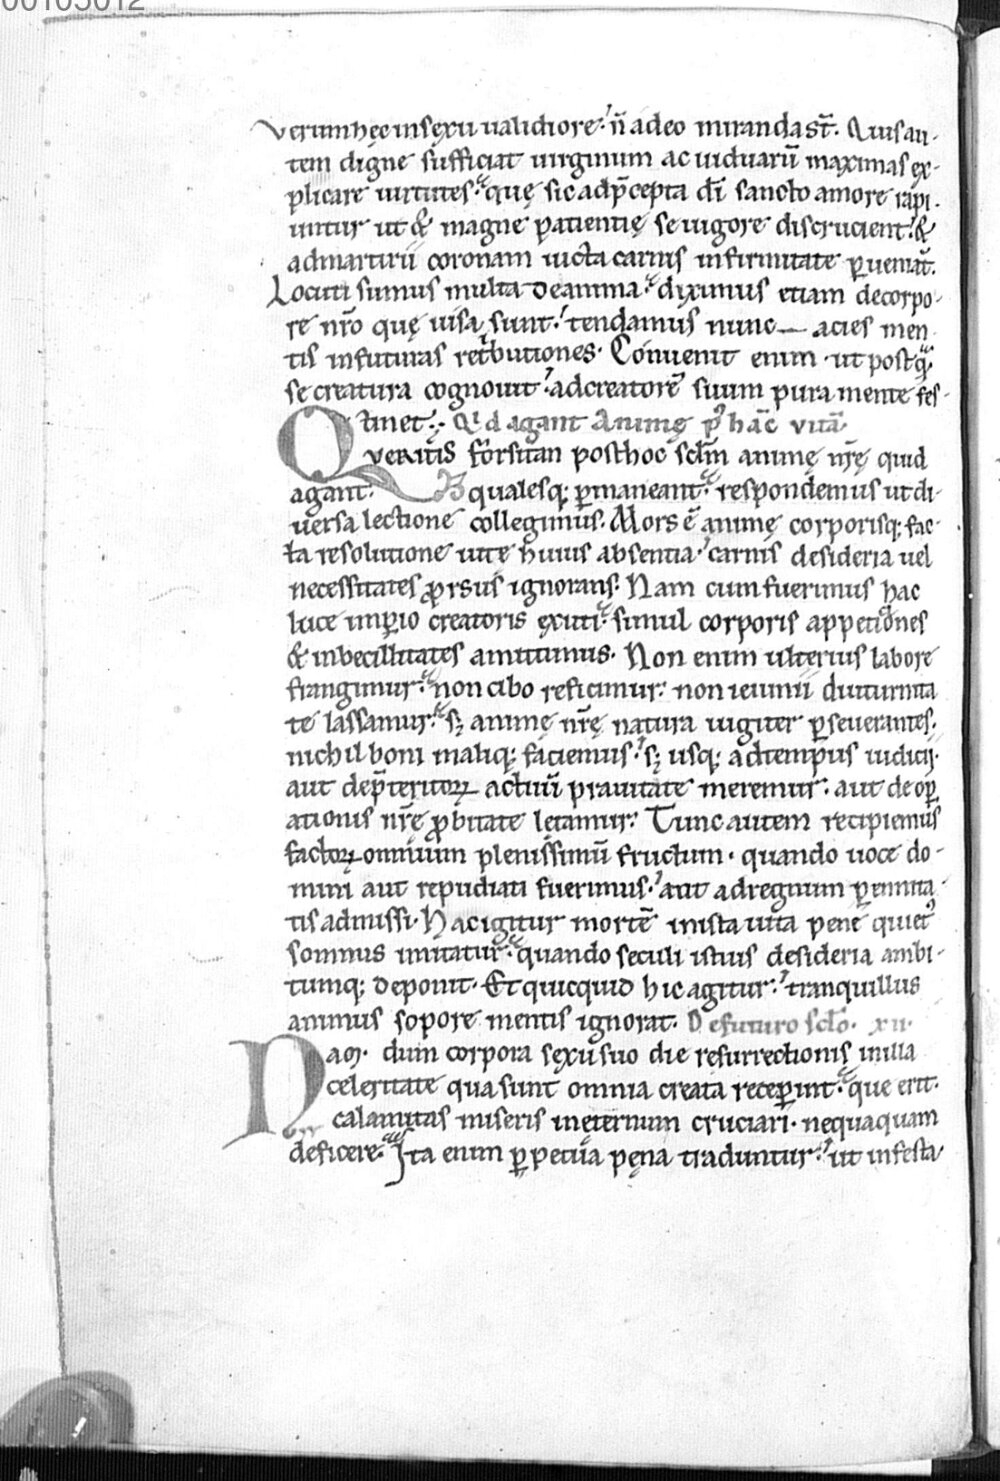 00105012
Verum hęc in sexu ualidiore. n̄ adeo miranda st̄. Quis au-
tem digne sufficiat uirginum ac uiduarū maximas ex-
plicare uirtutes. quę sic ad p̄cepta dī sancto amore rapi-
untur ut & magne patientię se uigore discrucient. &
ad martirii coronam uicta carnis infirmitate ꝑueniat̄.
Locuti sumus multa de anima. diximus etiam de corpo-
re nr̄o quę uisa sunt. tendamus nunc acies men
tis in futuras ret̄butiones. Conuenit enim. ut postq̄.
se creatura cognouit. ad creatorē suum pura mente fes-
tinet. Qd agant animę p' hāc vitā.
Queritis forsitan post hoc sclm̄ animę nr̄ę quid
agant. qualesq; ꝑmaneant. respondemus ut di-
uersa lectione collegimus. Mors ē animę corporisq; fac-
ta resolutione uitę huius absentia. carnis desideria uel
necessitates ꝓrsus ignorans. Nam cum fuerimus hac
luce imꝑio creatoris exuti. simul corporis appetitiones
& inbecillitates amittimus. Non enim ulterius labore
frangimur. non cibo reficimur. non ieiunii diuturnita
te lassamur. sꝫ animę nr̄ę natura iugiter ꝑseuerantes.
nichil boni maliq; faciemus. sꝫ usq; ad tempus iudicij.
aut de p̄teritoꝝ actuū prauitate meremur. aut de oꝑ
ationis nr̄ę ꝓbitate lętamur. Tunc autem recipiemus
factoꝝ omnium plenissimū fructum. quando uoce do-
mini aut repudiati fuerimus. aut ad regnum ꝑennita-
tis admissi. Hac igitur mortē in ista uita pene quiet'
somnus imitatur. quando seculi istius desideria ambi-
tumq; deponit. Et quicquid hic agitur. tranquillus
animus sopore mentis ignorat. De futuro sclo. xii.
Nam. dum corpora sexu suo die resurrectionis in illa
celeritate qua sunt omnia creata receꝑint. que erit
calamitas miseris in eternum cruciari. nequaquam
deficere. Ita enim ꝑpetua pęna traduntur. ut infesta